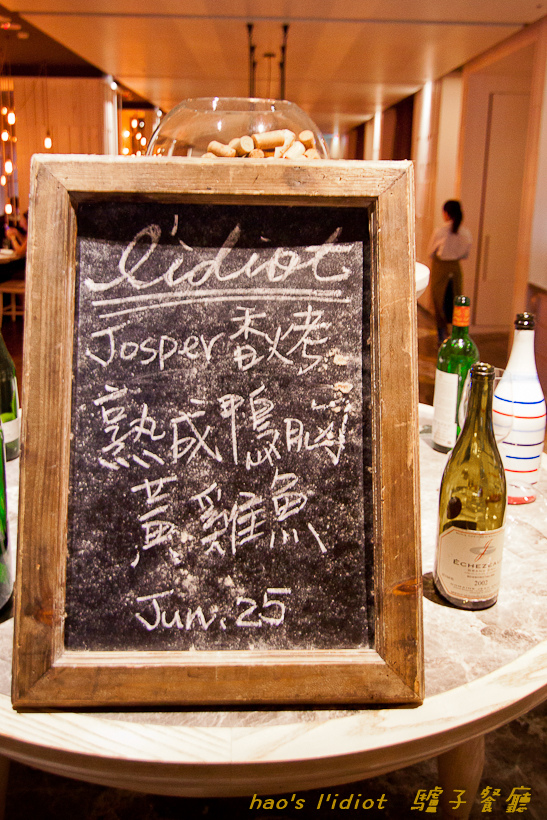 l'idiot
Josper 香烤
熟成鴨胸
黃雞魚
Jun. 25
ÉCHEZEAUX
2002
hao's l'idiot 驢子餐廳